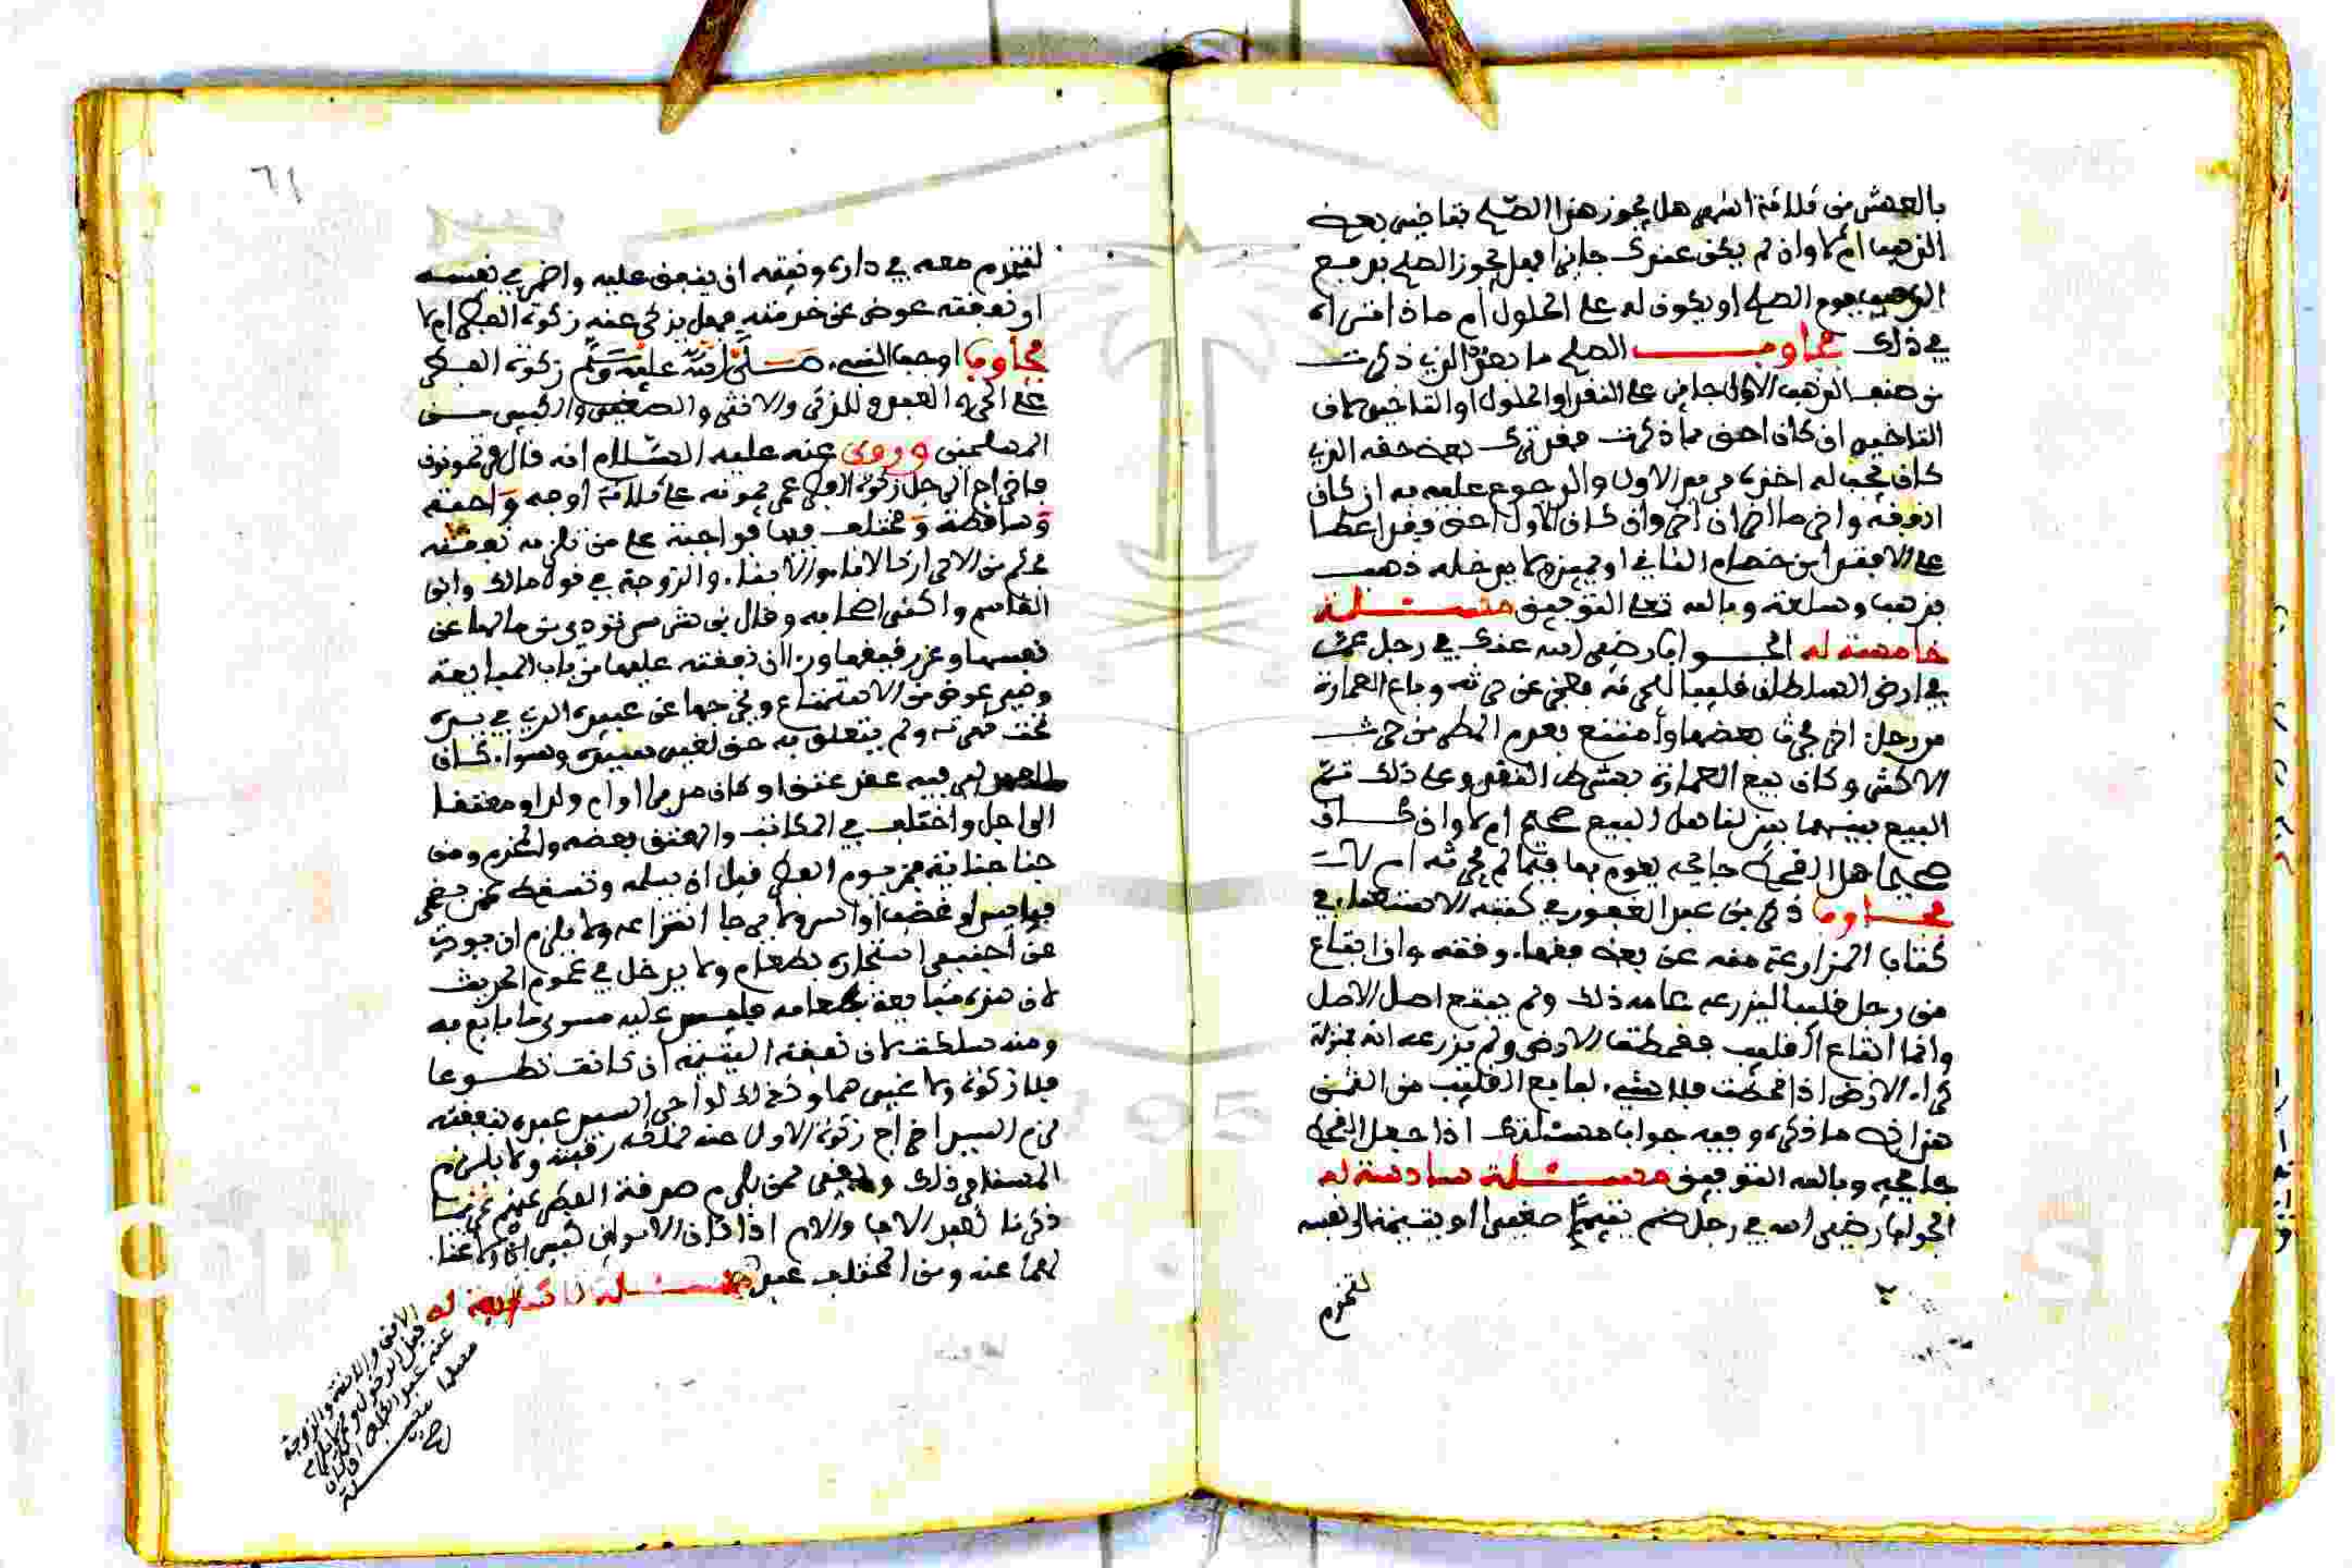 بالعشر من ثلاثة اشهر هل يجوز هذا الصلح بتاخير بعض
الذهب ام لا وان لم يكن عندك جايزا فهل يجوز الصلح بدفع
الذهب يوم الصلح او يكون له على الحلول أم ماذا تراه
في ذلك فجاوب الصلح ما بعد الذي ذكرت
من صنف الذهب الاول جايز على النقد او الحلول او التاخير لان
التاخير ان كان احق مما ذكرت فقد ترك بعض حقه الذي
كان يجب له اخذه من الاول والرجوع عليه به ان كان
ادون منه واخر ما اخر ان اخر وان كان الاول احق فقد اعطا
على الافتدا من خصام الثاني او غيره لا يدخله ذهب
بذهب وسلعة وبالله تعلى التوفيق مسئلة
خامسة له الجواب رضي الله عنك في رجل عمر
في ارض السلطان فليب للحرث فعجز عن حرثه وباع العمارة
من رجل اخر فحرث بعضها وامتنع بعدم المطر من حرث
الاكثر وكان بيع العمارة بشرط النقد وعلى ذلك تم
البيع بينهما بين لنا هل البيع صحيح ام لا وان كان
صحيحا هل القحط جايحة يقوم بها فيما لم يحرثه ام لا
فجاوب ذكر بن عبد الغفور في كتبه الاستغنا في
كتاب المزارعة منه عن بعض فقهاء وقته وان ابتاع
من رجل فليبا ليزرعه عامه ذلك ولم يبتع اصل الاصل
وانما ابتاع القليب فقحطت الارض ولم يزرعه انه بمنزلة
كراء الارض اذا قحطت فلا شيء لبايع القليب من الثمن
هذا نص ما ذكره وفيه جواب مسئلتك اذا جعل القحط
جايحة وبالله التوفيق مسئلة سادسة له
الجواب رضي الله في رجل ضم يتيما صغيرا او يتيمة الى نفسه
لتخدم
٦١
لتخدم معه في داره ونيته ان ينفق عليه واضمر في نفسه
ان نفقته عوض عن خدمته فهل يزكي عنه زكوة الفطر ام لا
فجاوب اوجب النبي صلى الله عليه وسلم زكوة الفطر
على الحر والعبد والذكر والانثى والصغير والكبير من
المسلمين وروي عنه عليه السلام انه قال ممن تمونون
فاخراج الرجل زكوة الفطر عمن يمونه على ثلاثة اوجه واجبة
وساقطة ومختلف فيها فواجبة على من تلزمه نفقته
من الاحرار كالاباء والابناء والزوجة في قول مالك وابن
القاسم واكثر اصحابه وقال بن اشرس تودي من مالها عن
نفسها وعن رقيقها وراا ان نفقته عليها من باب المبايعة
وهي عوض من الاستمتاع ويخرجها عن عبيده الذي في يده
تحت قهرته ولم يتعلق به حق لغير سيده وسواء كان
فيه عقد عتق او كان مدبرا او ام ولد او معتقا
الى اجل واختلف في المكاتب والمعتق بعضه والمخدم ومن
جنا جناية فمر يوم الفطر قبل ان يسلمه وتسقط عمن
او غصب او اسر ولا يرجا انتزاعه ولا يلزم ان يودى
عن اجنبي استجاره بطعام ولا يدخل في عموم الحديث
لان هذه مبايعة بطعامه فليس عليه سوى ما بايع به
ومنه سلطت لان نفقة اليتيمة ان كانت تطوعا
فلا زكوة ولا غيرهما وكذلك لو اجر السيد عبده بنفقته
لزم السيد اخراج زكوة الاول عنه لملكه رقبته ولا يلزم
المستاجر ذلك ممن يلزم صدقة الفطر عنهم غير من
ذكرنا لعبد الاب والام اذا كان الابوان فقيرين ولا غنا
لهما عنه ومن المختلف عبد مسئلة سابعة له
الابن والابنة والزوجة
قبل الدخول ومما يلزم
عنه عبد الطفل اذا كان
مسلما
صح